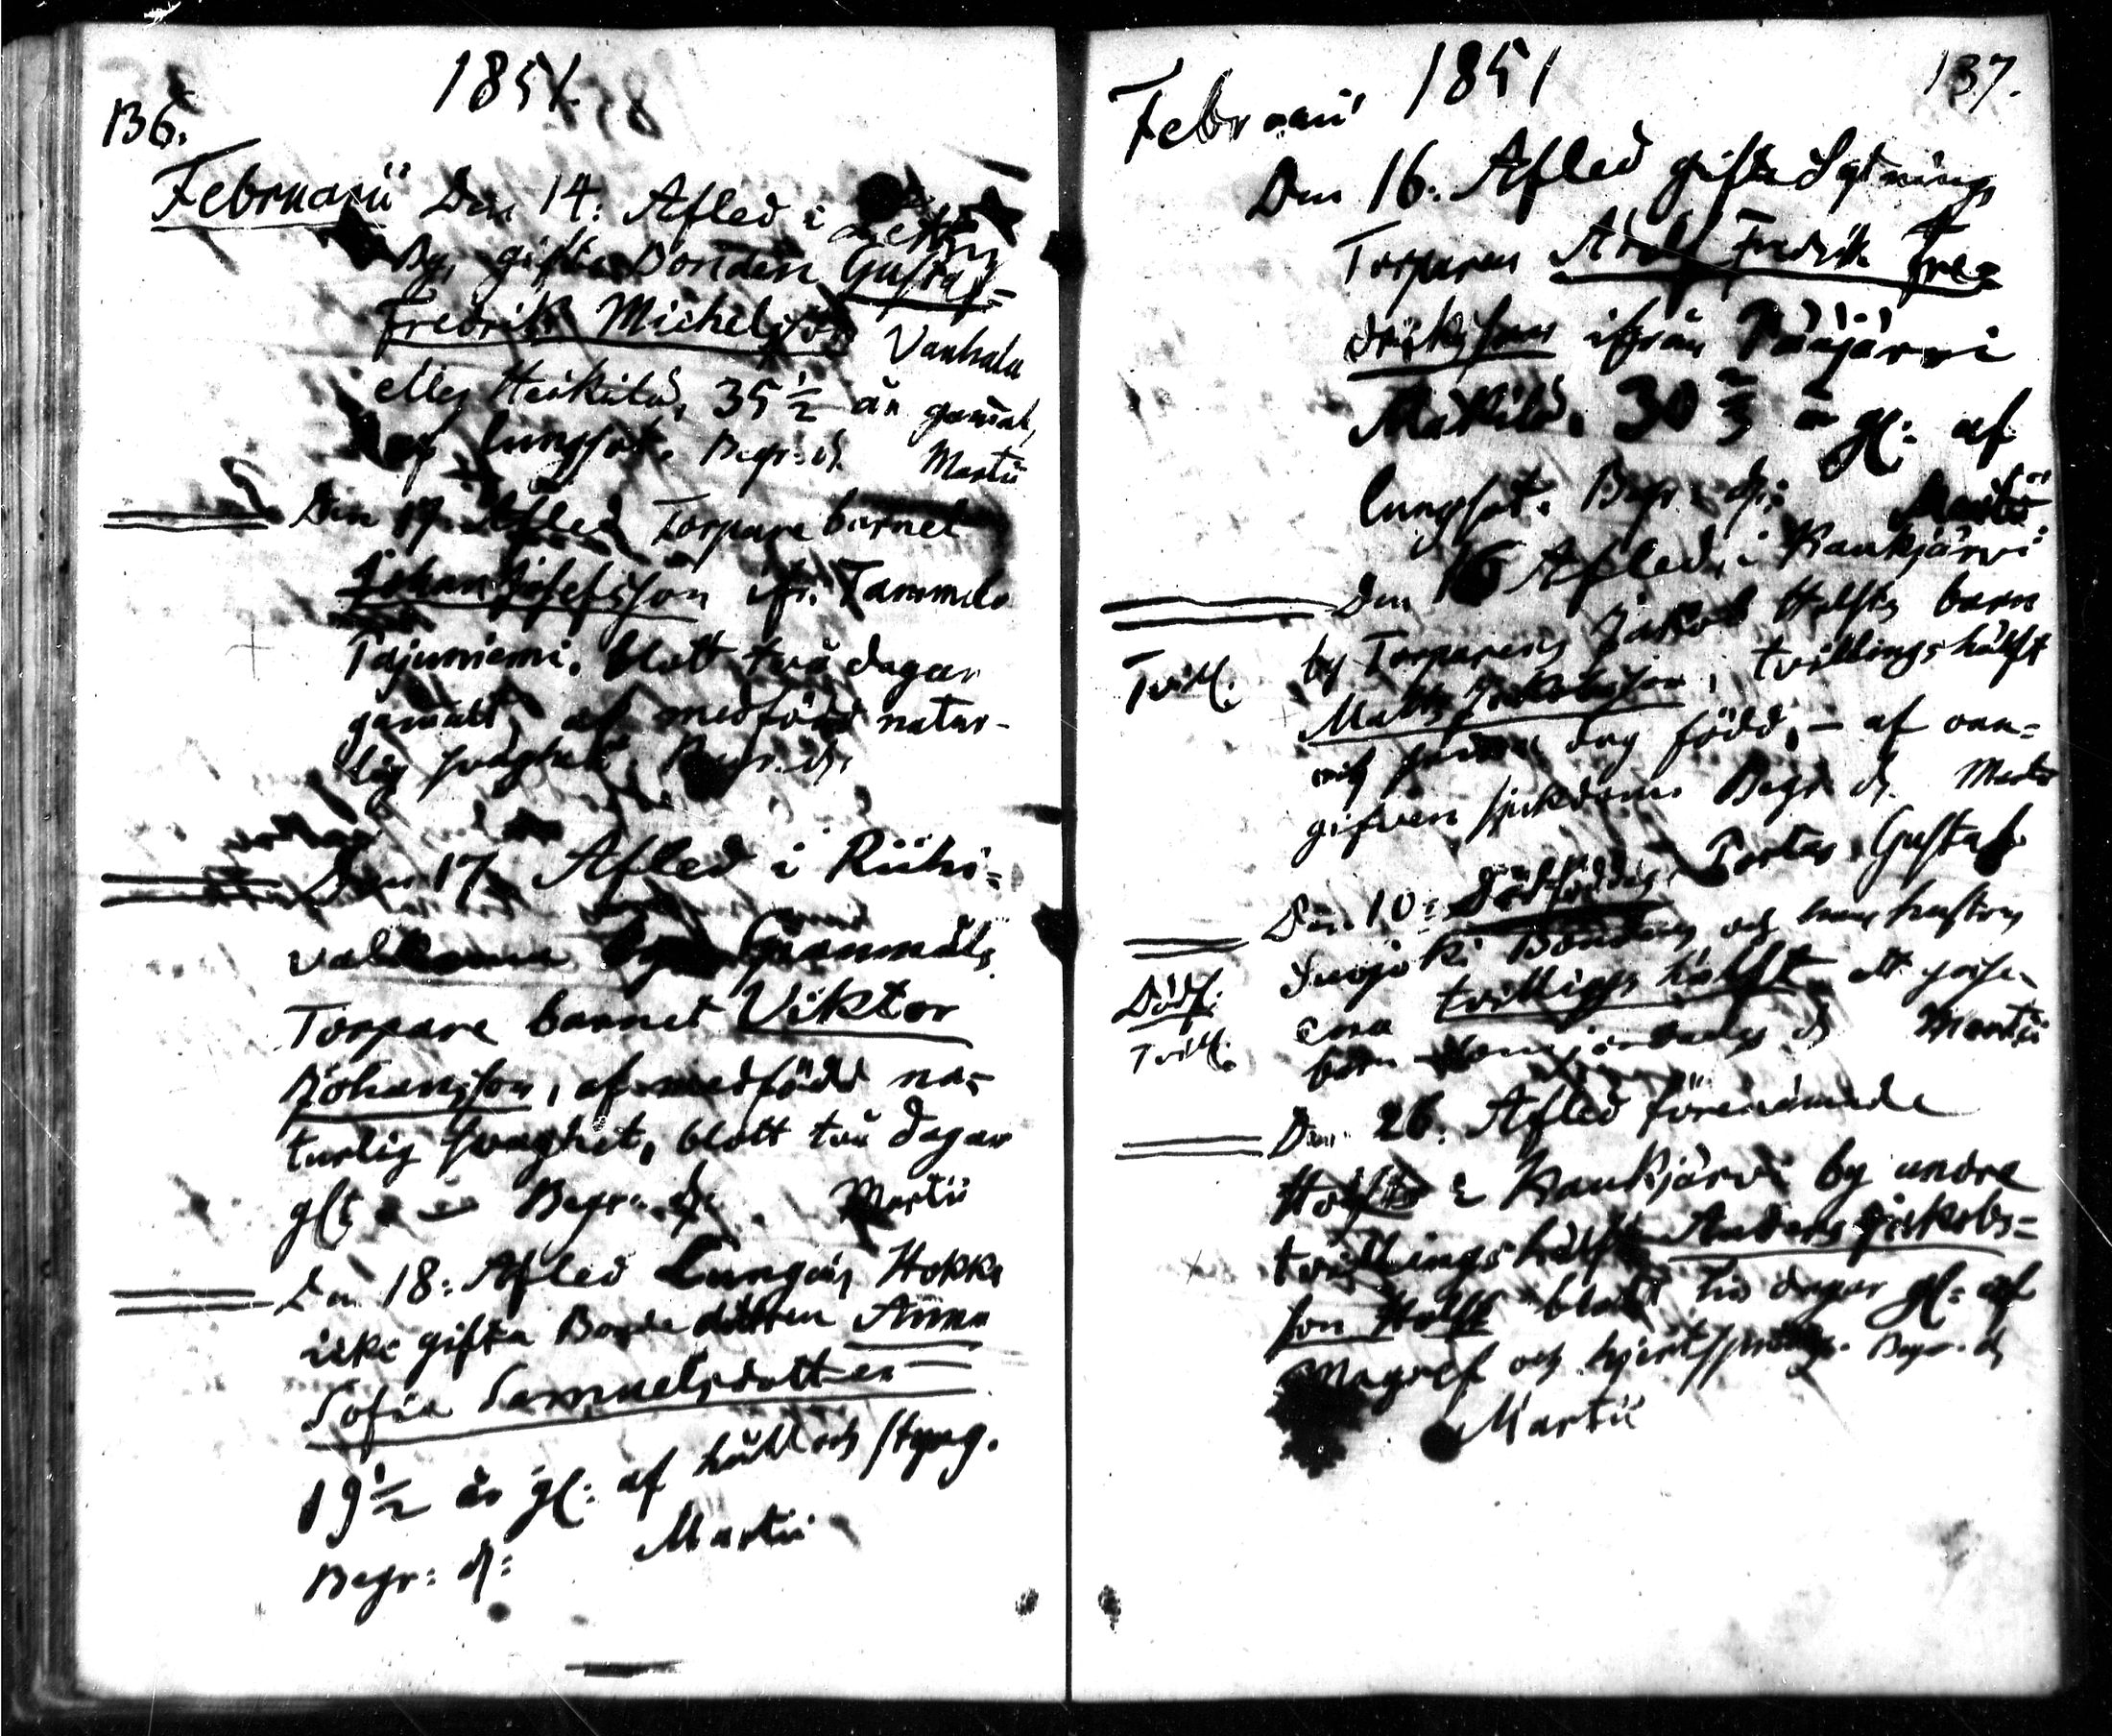 136.
1851.
Februarii Den 14: Afled i
By, gifte Bonden Gustaf
Fredrik Michelsson Vanhala
eller Heikkilä, 35 1/2 år gamal,
af lungsot. Begr: d. Martii
Den 17. Afled Torpare barnet
Johan Josefsson ifr. Tammela
Tajuniemi. blott två dagar
gamalt, af medfödd natur-
lig svaghet. Begr. d.
Den 17. Afled i Riihi-
valkama by
Torpare barnet Viktor
Johansson, af medfödd na-
turlig svaghet, blott två dagar
glt Begr: d: Martii
Den 18: Afled Hokka
icke gifta Bonde dottren Anna
Sofia Samuelsdotter
19 1/2 år gl: af håll och styng.
Begr: d: Martii
137.
Februarii 1851
Den 16. Afled gifte Sytnings
Torparen Adolf Fredrik Fre=
driksson ifrån Pääjärvi
Mäkilä, 30 2/3 å gl: af
lungsot. Begr: d: Martii
Den 16 Afled, i Kaukjärvi
by Torparens Jakob barn
Tvill. Matts Jakobsson, tvillings hälft
dag född, – af oan=
gifven sjukdom. Begr d. Martii
Den 10: Dödföddes Portas Gustaf
Suojoki Bondens och hans hustrus
Dödf. ena tvillings hälft ett
Tvill. barn d Martii
Den 26. Afled förenämnde
i Kaukjärvi by andre
tvillings hälft Anders Jakobs=
son blott tio dagar gl: af
Magref och hjertsprång. Begr. d
Martii